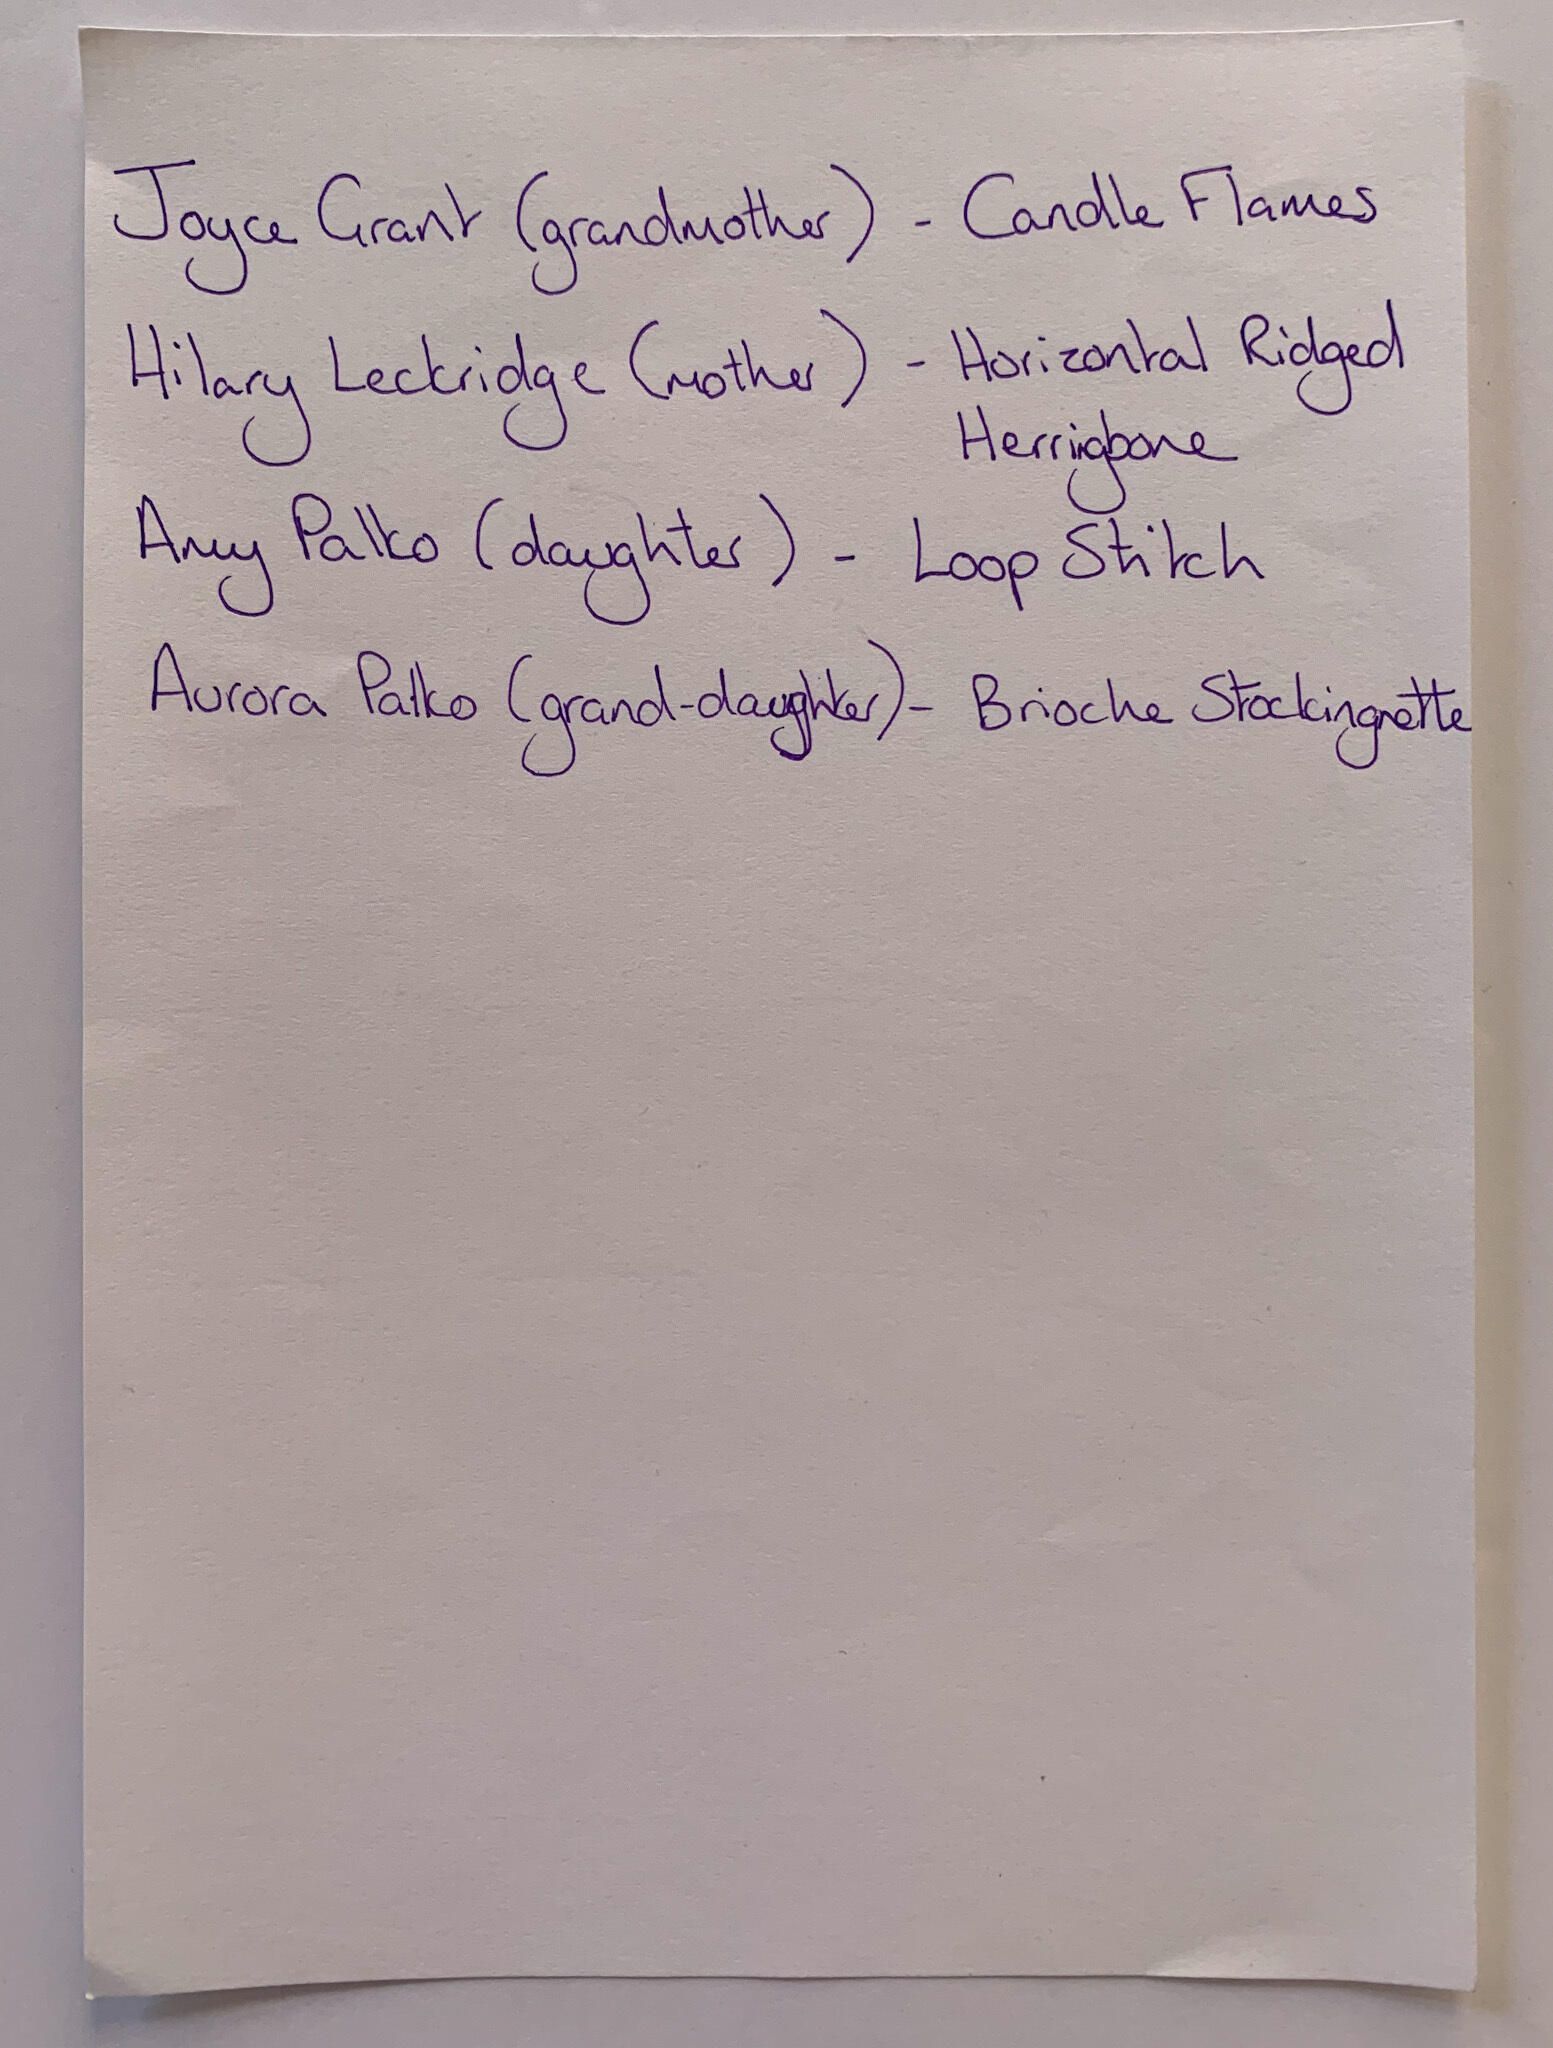 Joyce Grant (grandmother) - Candle Flames
Hilary Leckridge (mother) - Horizontal Ridged
Herringbone
Amy Palko (daughter) - Loop Stitch
Aurora Palko (grand-daughter) - Brioche Stockingnette